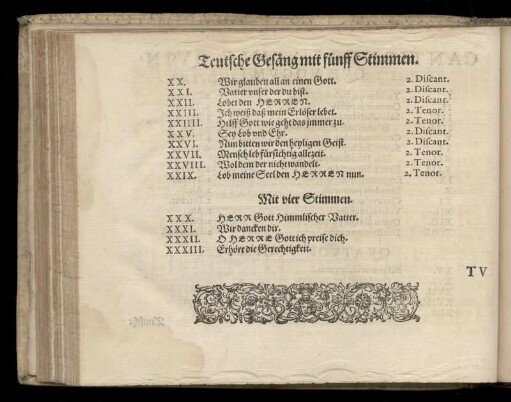 Teutsche Gesäng mit fünff Stimmen.
XX. Wir glauben all an einen Gott. 2. Discant.
XXI. Vatter vnser der du bist. 2. Discant.
XXII. Lobet den HERREN. 2. Discant.
XXIII. Ich weiß daß mein Erlöser lebet. 2. Tenor.
XXIIII. Hilff Gott wie geht das jmmer zu. 2. Tenor.
XXV. Sey Lob vnd Ehr. 2. Discant.
XXVI. Nun bitten wir den heyligen Geist. 2. Discant.
XXVII. Mensch leb fürsichtig allezeit. 2. Tenor.
XXVIII. Wol dem der nicht wandelt. 2. Tenor.
XXIX. Lob meine Seel den HERREN nun. 2. Tenor.
Mit vier Stimmen.
XXX. HERR Gott Himmlischer Vatter.
XXXI. Wir dancken dir.
XXXII. O HERRE Gott ich preise dich.
XXXIII. Erhöre die Gerechtigkeit.
TV